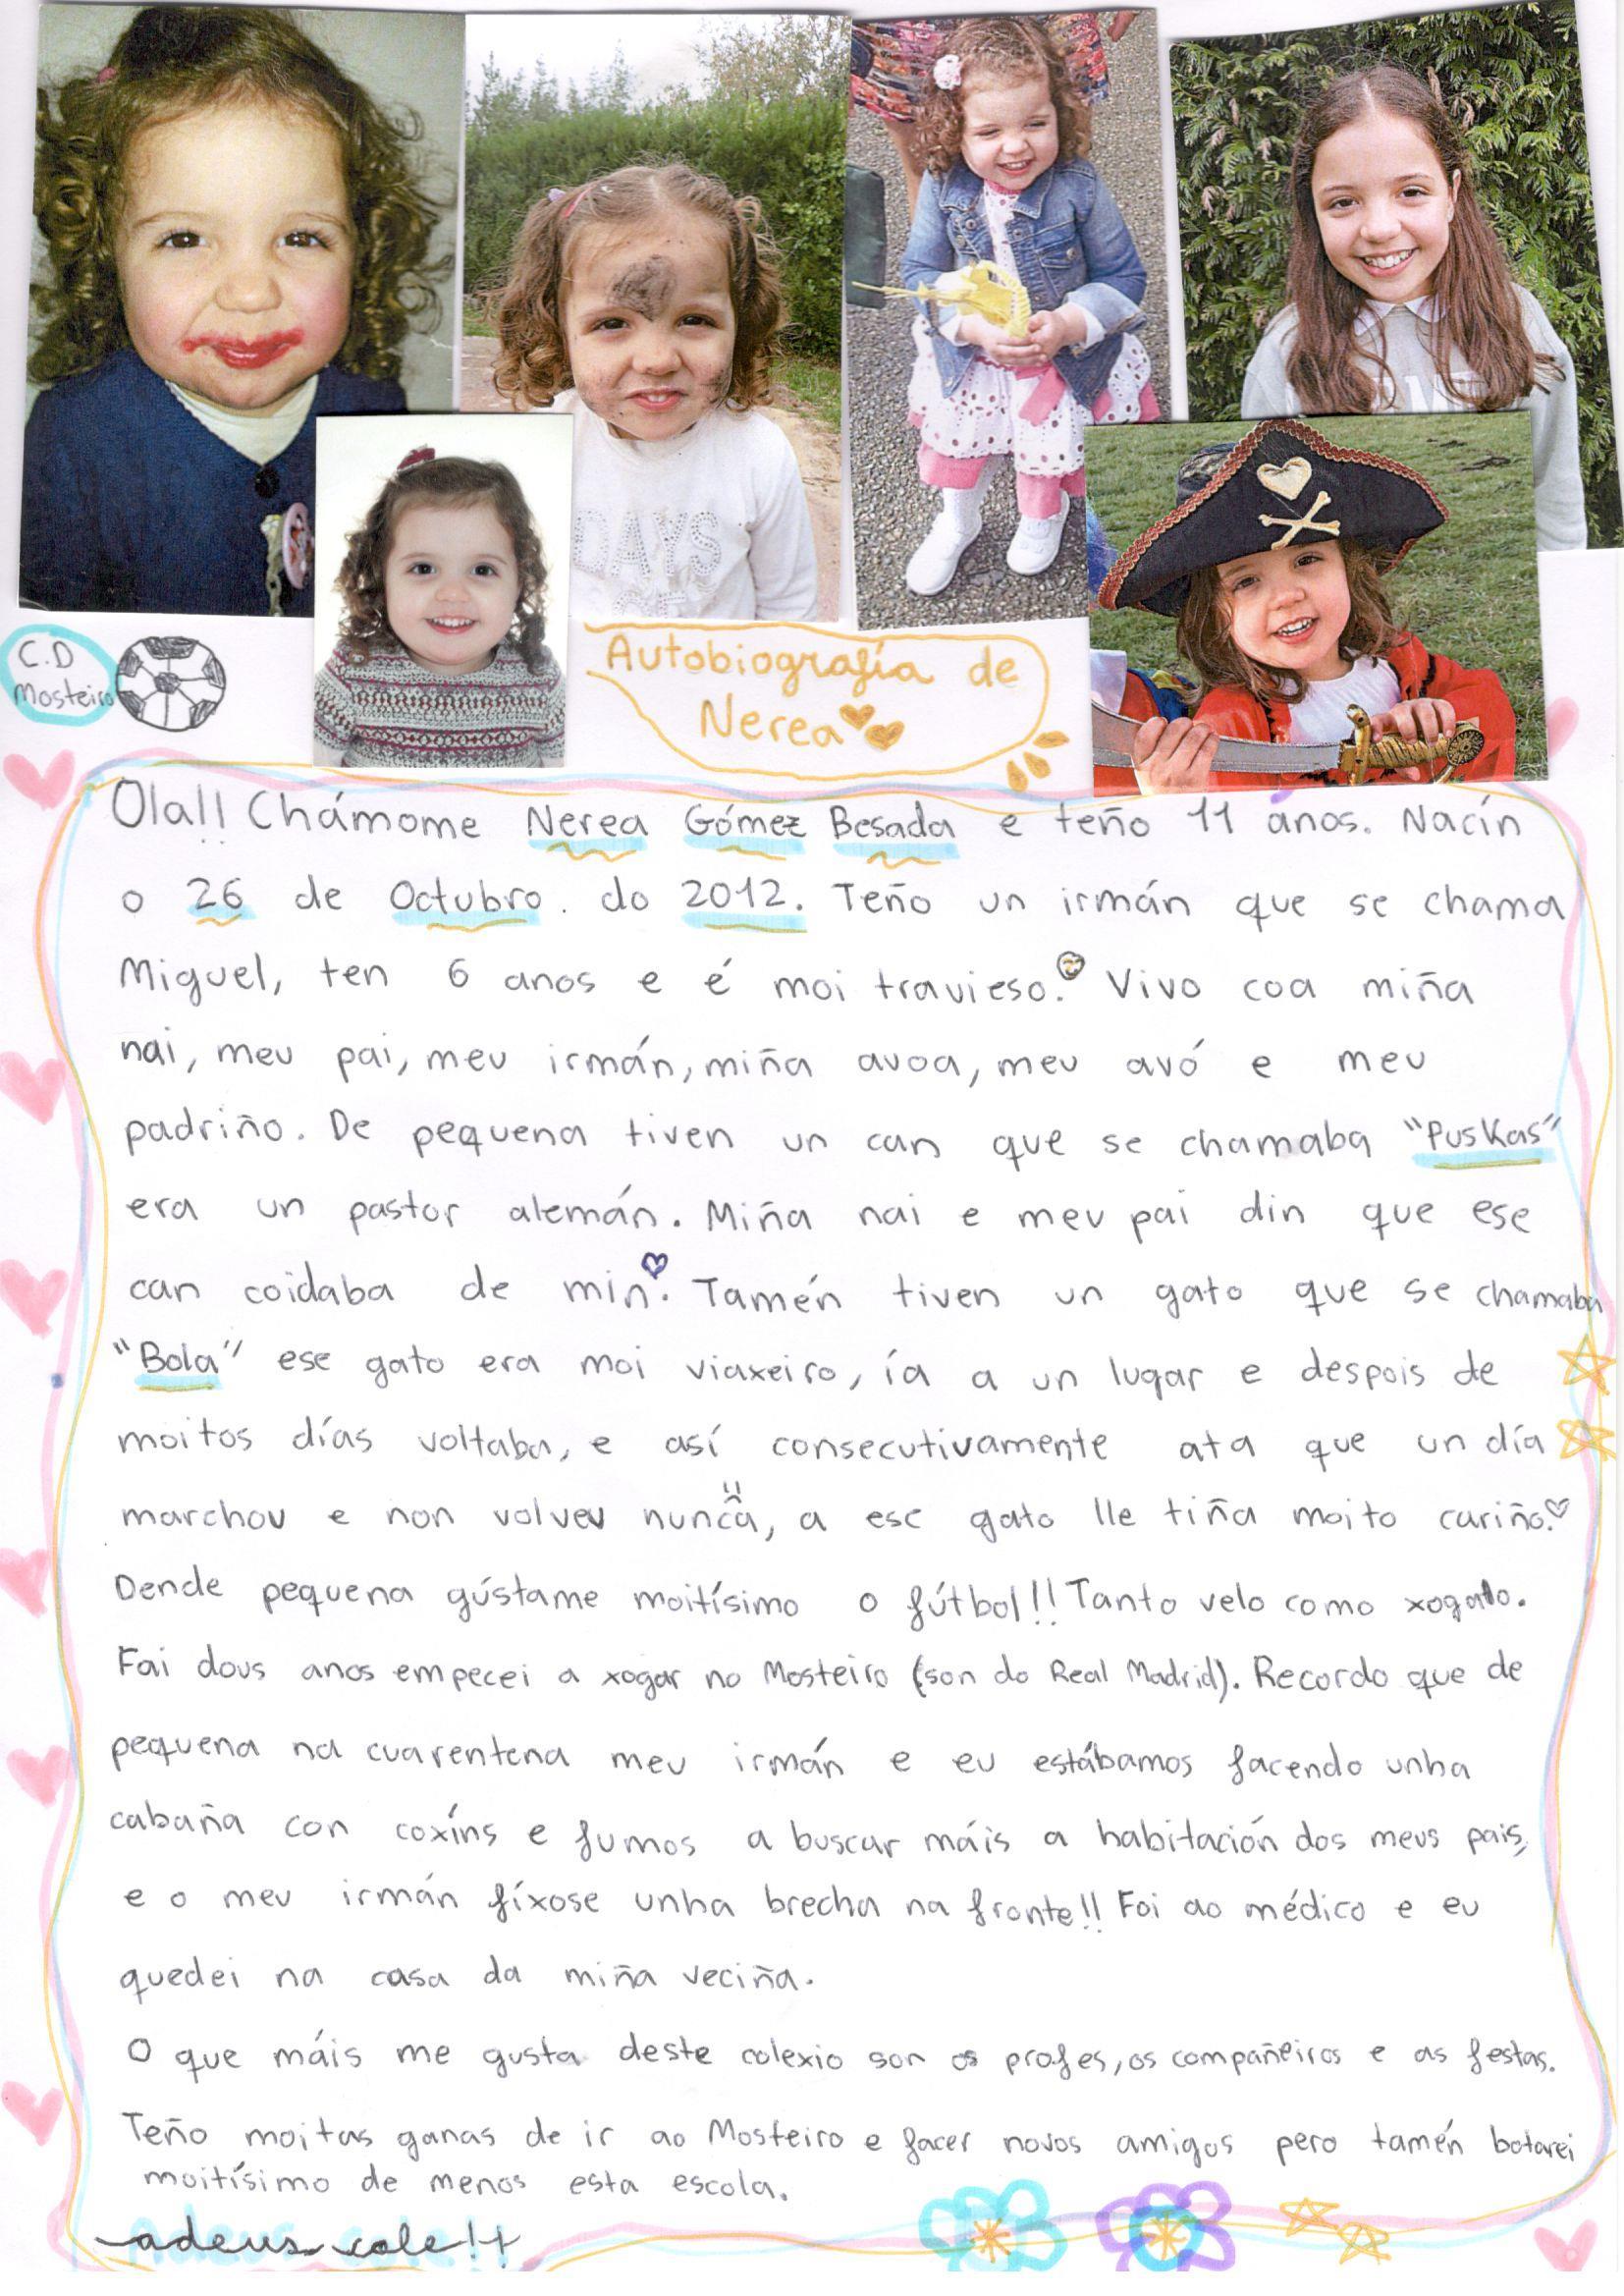 DAYS
C.D
Mosteiro
Autobiografía de
Nerea
Ola!! Chámome Nerea Gómez Besada e teño 11 ános. Nacín
o 26 de Octubro. do 2012. Teño un irmán que se chama
Miguel, ten 6 anos e é moi travieso. Vivo coa miña
nai, meu pai, meu irmán, miña avoa, meu avó e meu
padriño. De pequena tiven un can que se chamaba "Puskas"
era un pastor alemán. Miña nai e meu pai din que ese
can coidaba de min. Tamén tiven un gato que se chamaba
"Bola" ese gato era moi viaxeiro, ía a un lugar e despois de
moitos días voltaba, e así consecutivamente ata que un día
marchou e non volveu nunca, a ese gato lle tiña moito cariño.
Dende pequena gústame moitísimo o fútbol!! Tanto velo como xogalo.
Fai dous anos empecei a xogar no Mosteiro (son do Real Madrid). Recordo que de
pequena na cuarentena meu irmán e eu estábamos facendo unha
cabaña con coxíns e fumos a buscar máis a habitación dos meus pais,
e o meu irmán fíxose unha brecha na fronte!! Foi ao médico e eu
quedei na casa da miña veciña.
O que máis me gusta deste colexio son os profes, os compañeiros e as festas.
Teño moitas ganas de ir ao Mosteiro e facer novos amigos pero tamén botarei
moitísimo de menos esta escola.
adeus cole!!